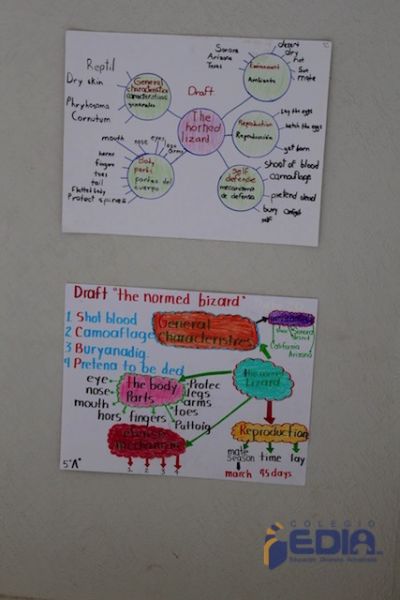 Reptil
Dry skin
Phryhosoma
Cornutum
General
characteristics
características
generales
Draft
The
horned
lizard
Sonora
Arizona
Texas
Environment
Ambiente
desert
dry
hot
Sun
Reproduction
Reproducción
Lay the eggs
hatch the eggs
get born
mouth
nose
eyes
legs
arms
horns
fingers
toes
tail
Flatted body
Protect spines
Body
parts
partes del
cuerpo
Self
defense
mecanismo
de defensa
shoot of blood
camouflage
pretend
bury
self
Draft "the normed bizard"
1 Shot blood
2 Camoaflage
3 Buryanadig
4 Pretena to be ded
General
Characteristres
Sonora
Desert
California
Arizona
Lizard
The body
Parts
eye
nose
mouth
hors
fingers
toes
arms
legs
Protec
Reproduction
mate
season
time
lay
march
45 days
1 2 3 4
5°"A"
COLEGIO
EDIA